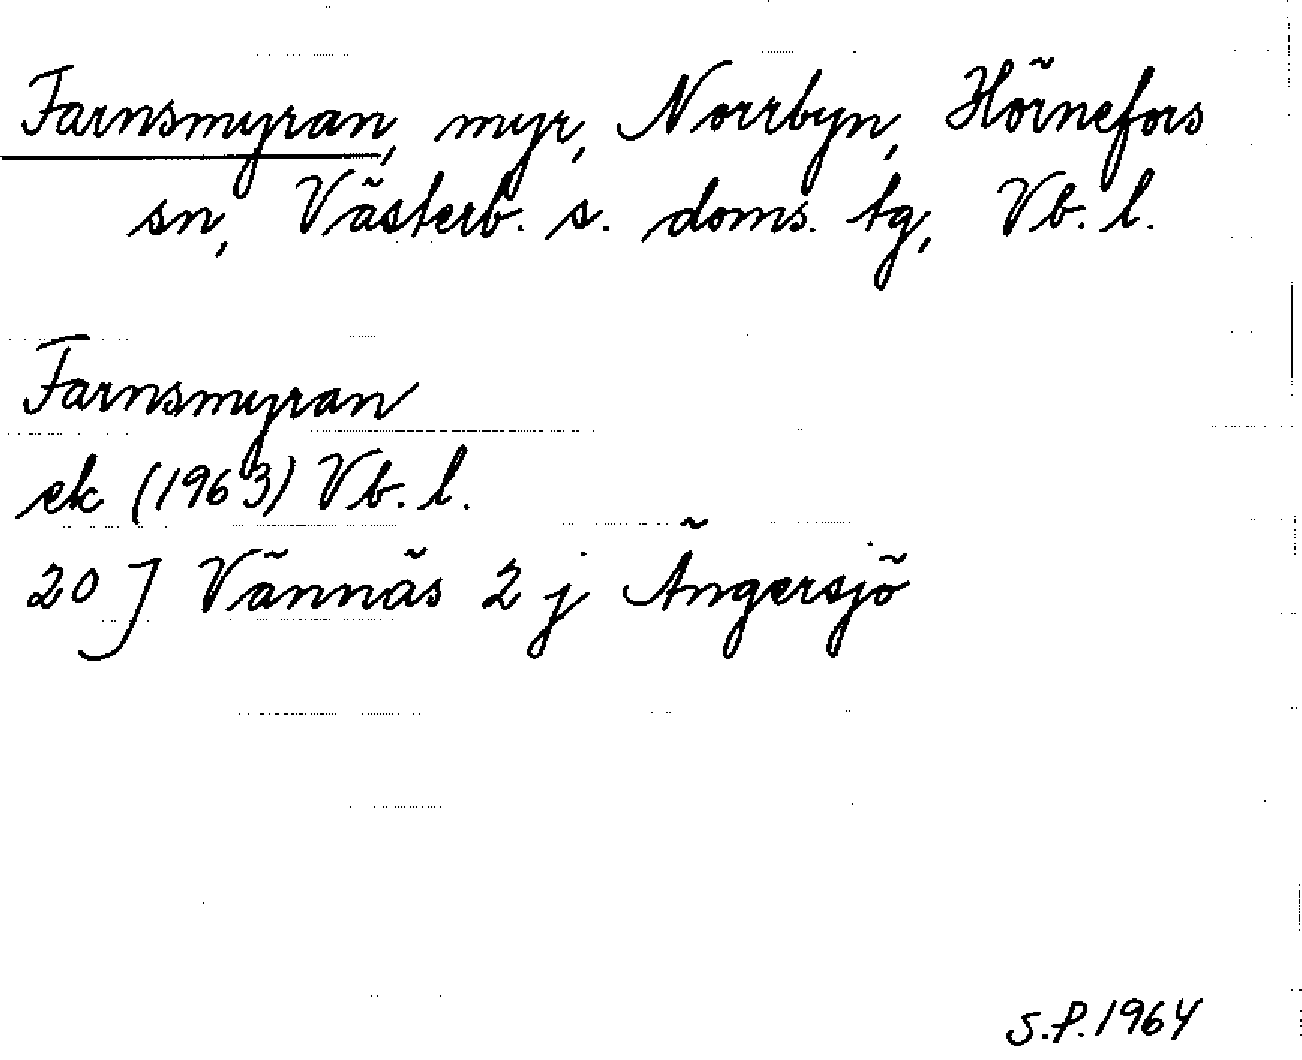 Farnsmyran, myr, Norrbyn, Hörnefors
sn, Västerb. s. doms. tg, Vb. l.
Farnsmyran
ek (1963) Vb. l.
20 J Vännäs 2 j Ängersjö
S.P. 1964